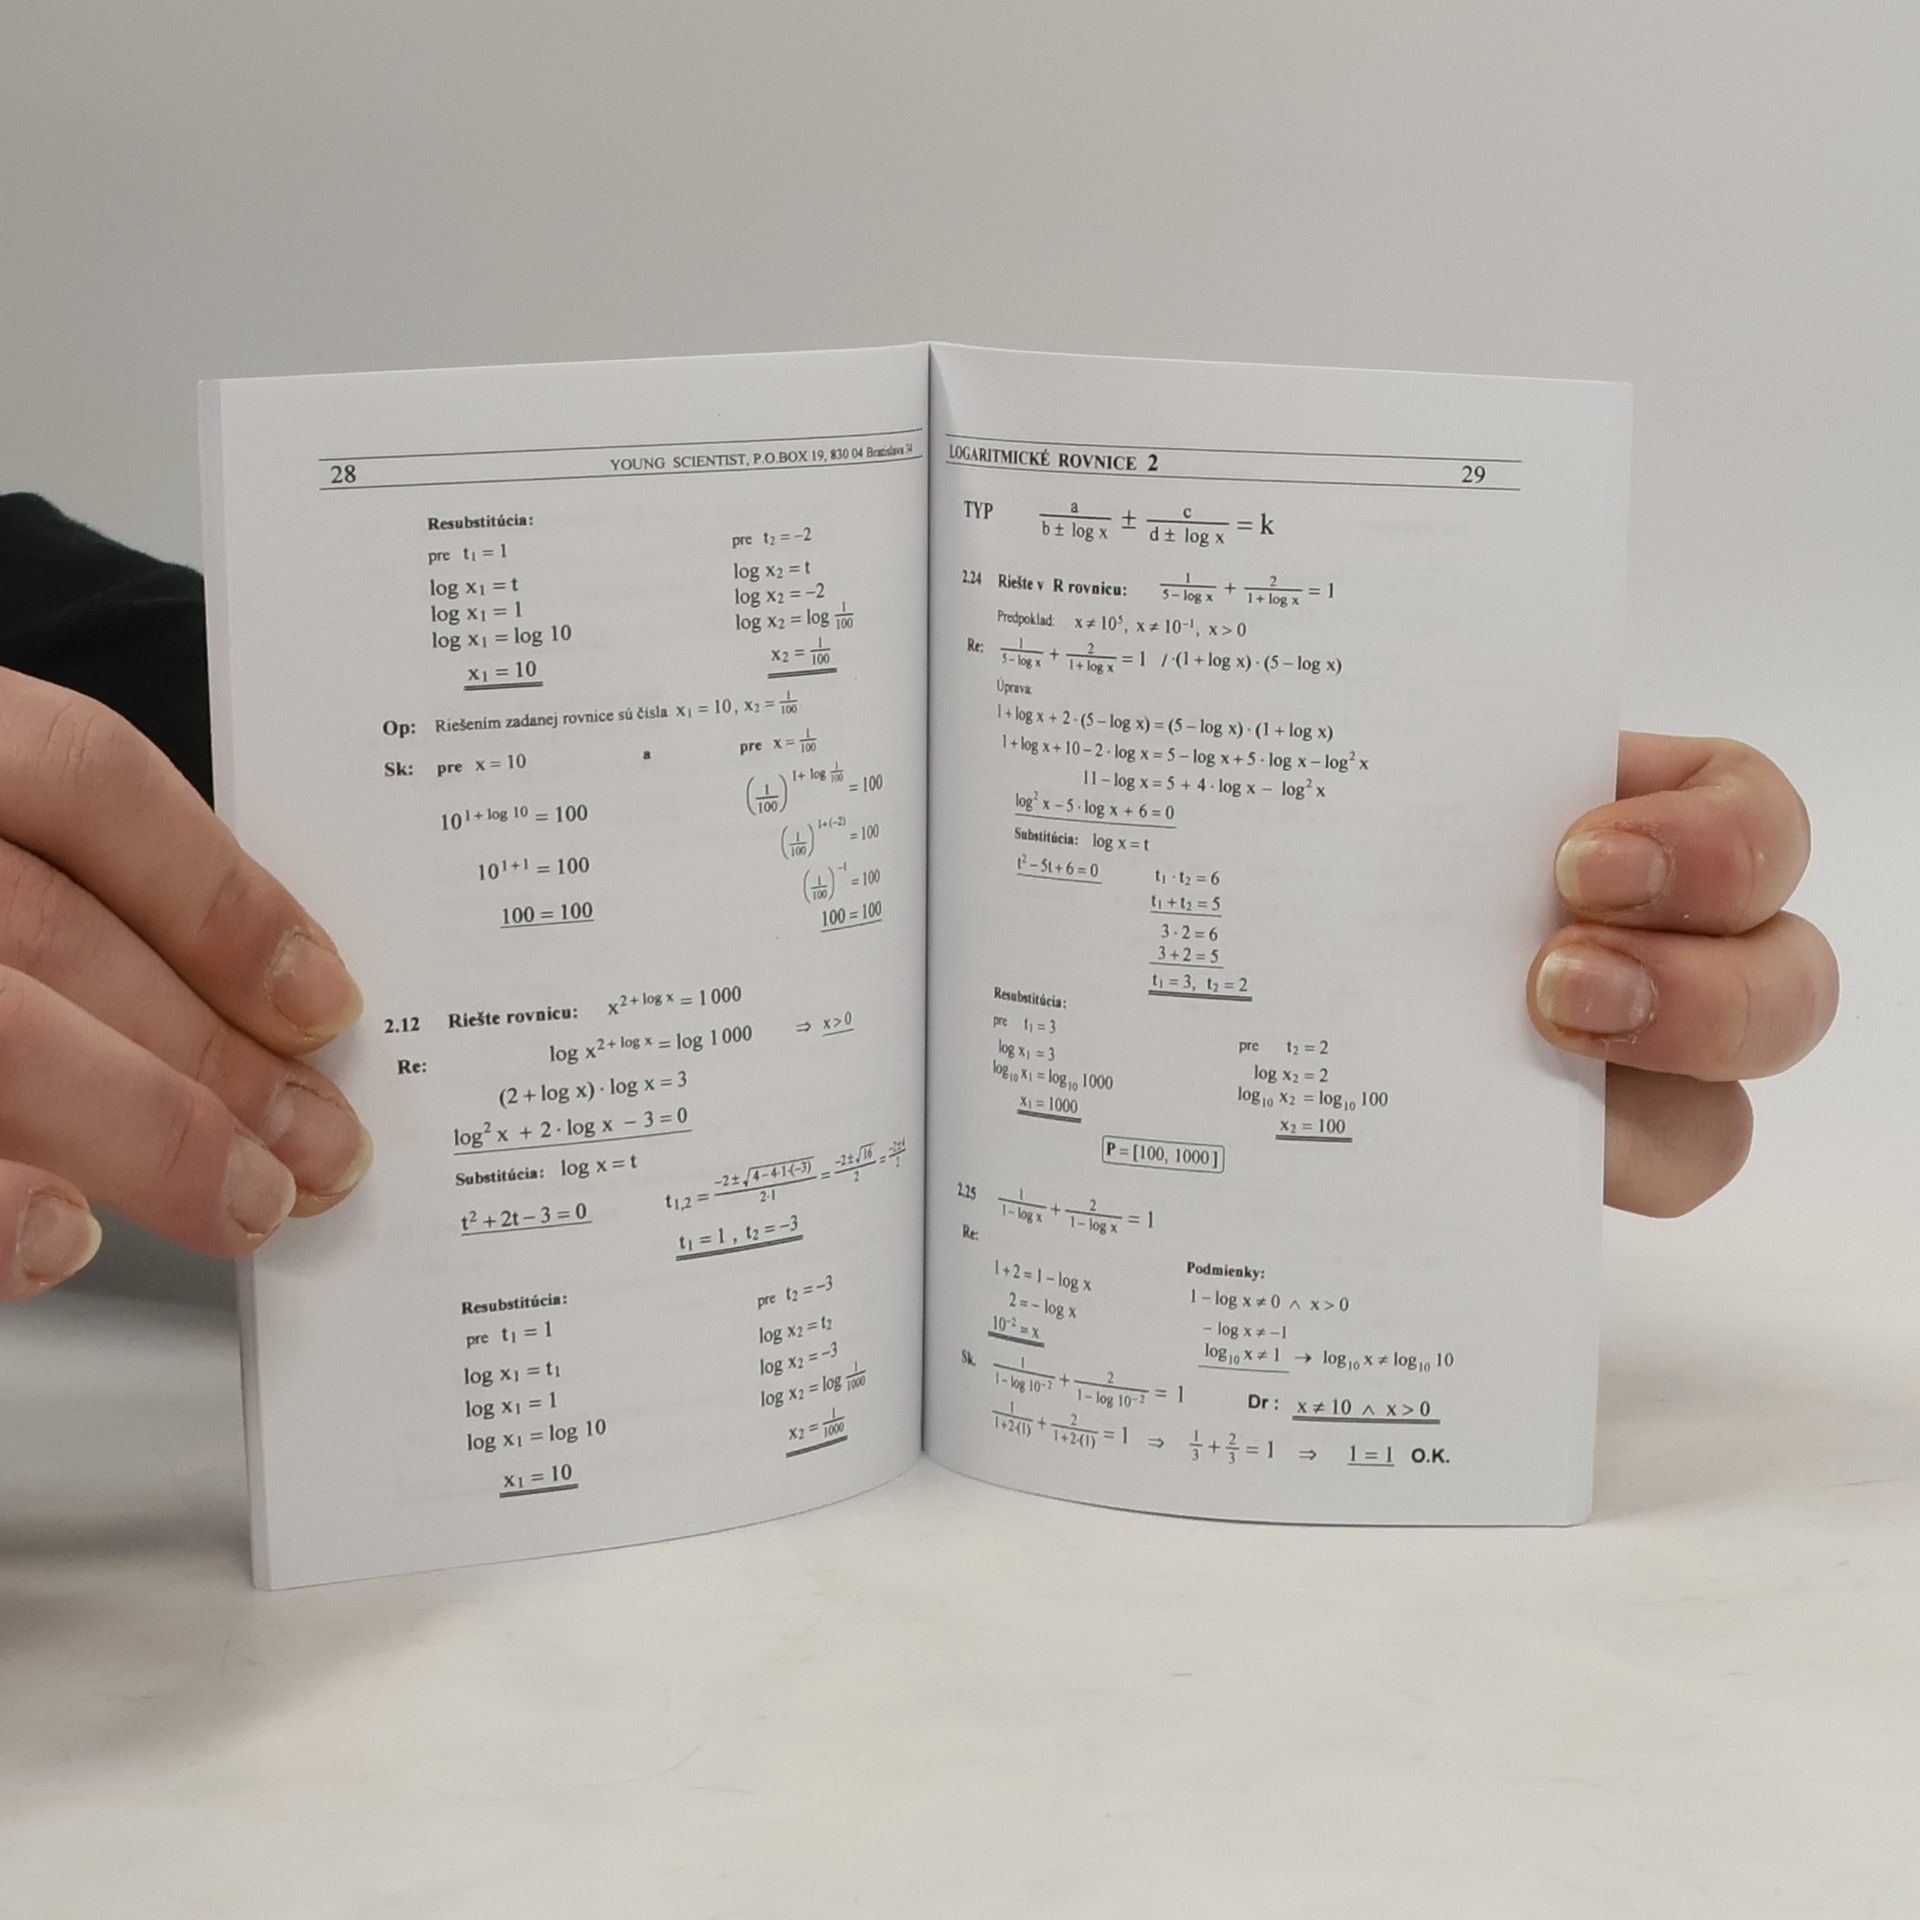 28 YOUNG SCIENTIST, P.O.BOX 19, 830 04 Bratislava 34
Resubstitúcia:
pre t₁ = 1 pre t₂ = −2
log x₁ = t log x₂ = t
log x₁ = 1 log x₂ = −2
log x₁ = log 10 log x₂ = log 1/100
x₁ = 10 x₂ = 1/100
Op: Riešením zadanej rovnice sú čísla x₁ = 10, x₂ = 1/100
Sk: pre x = 10 a pre x = 1/100
10^(1 + log 10) = 100 (1/100)^(1 + log 1/100) = 100
10^(1+1) = 100 (1/100)^(1+(−2)) = 100
(1/100)^(−1) = 100
100 = 100 100 = 100
2.12 Riešte rovnicu: x^(2 + log x) = 1 000
Re: log x^(2 + log x) = log 1 000 ⇒ x > 0
(2 + log x) · log x = 3
log² x + 2 · log x − 3 = 0
Substitúcia: log x = t
t² + 2t − 3 = 0 t₁,₂ = (−2 ± √(4 − 4·1·(−3)))/(2·1) = (−2 ± √16)/2 = (−2 ± 4)/2
t₁ = 1 , t₂ = −3
Resubstitúcia:
pre t₁ = 1 pre t₂ = −3
log x₁ = t₁ log x₂ = t₂
log x₁ = 1 log x₂ = −3
log x₁ = log 10 log x₂ = log 1/1000
x₁ = 10 x₂ = 1/1000
LOGARITMICKÉ ROVNICE 2 29
TYP a/(b ± log x) ± c/(d ± log x) = k
2.24 Riešte v R rovnicu: 1/(5 − log x) + 2/(1 + log x) = 1
Predpoklad: x ≠ 10⁵, x ≠ 10⁻¹, x > 0
Re: 1/(5 − log x) + 2/(1 + log x) = 1 / ·(1 + log x) · (5 − log x)
Úprava:
1 + log x + 2 · (5 − log x) = (5 − log x) · (1 + log x)
1 + log x + 10 − 2 · log x = 5 − log x + 5 · log x − log² x
11 − log x = 5 + 4 · log x − log² x
log² x − 5 · log x + 6 = 0
Substitúcia: log x = t
t² − 5t + 6 = 0 t₁ · t₂ = 6
t₁ + t₂ = 5
3 · 2 = 6
3 + 2 = 5
t₁ = 3, t₂ = 2
Resubstitúcia:
pre t₁ = 3 pre t₂ = 2
log x₁ = 3 log x₂ = 2
log₁₀ x₁ = log₁₀ 1000 log₁₀ x₂ = log₁₀ 100
x₁ = 1000 x₂ = 100
P = [100, 1000]
2.25 1/(1 − log x) + 2/(1 − log x) = 1
Re:
1 + 2 = 1 − log x Podmienky:
2 = − log x 1 − log x ≠ 0 ∧ x > 0
10⁻² = x − log x ≠ −1
log₁₀ x ≠ 1 → log₁₀ x ≠ log₁₀ 10
Sk. 1/(1 − log 10⁻²) + 2/(1 − log 10⁻²) = 1 Dr : x ≠ 10 ∧ x > 0
1/(1+2·(1)) + 2/(1+2·(1)) = 1 ⇒ 1/3 + 2/3 = 1 ⇒ 1 = 1 O.K.